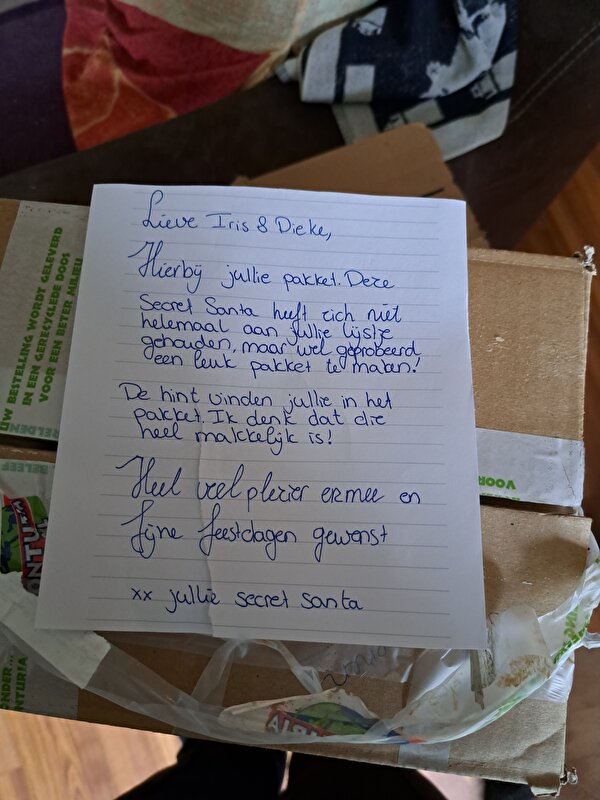 Lieve Iris & Dieke,
Hierbij jullie pakket. Deze
Secret Santa heeft zich niet
helemaal aan jullie lijstje
gehouden, maar wel geprobeerd
een leuk pakket te maken!
De hint vinden jullie in het
pakket. Ik denk dat die
heel makkelijk is!
Heel veel plezier ermee en
fijne feestdagen gewenst
xx jullie secret santa
UW BESTELLING WORDT GELEVERD
IN EEN GERECYCLEDE DOOS
VOOR EEN BETER MILIEU
BELEEF
VOOR